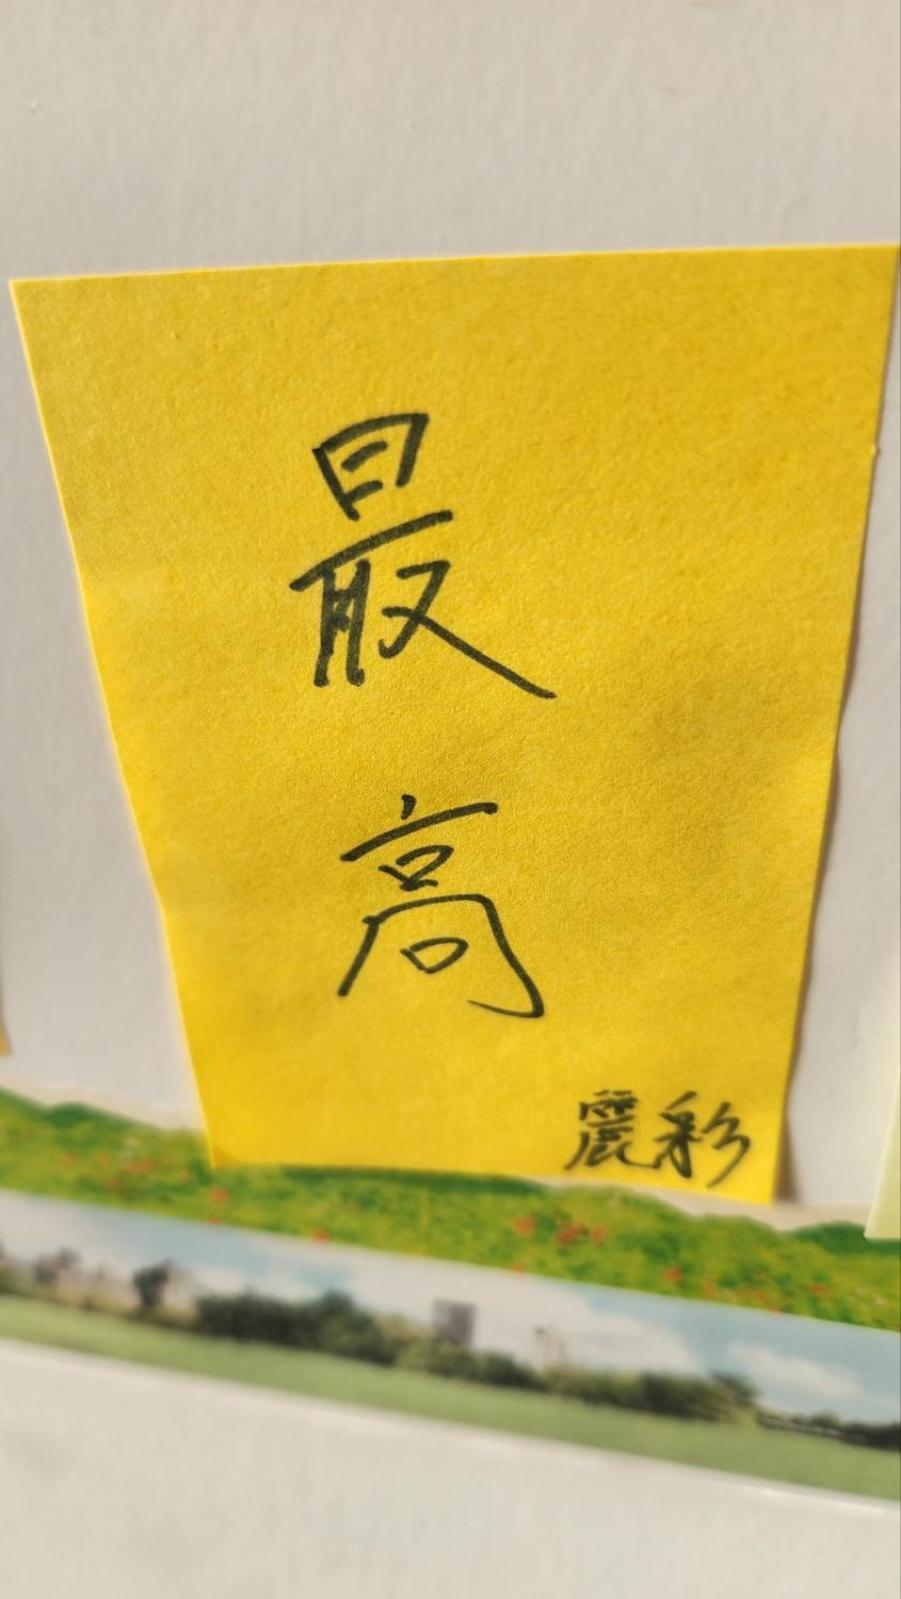 最高
麗彩